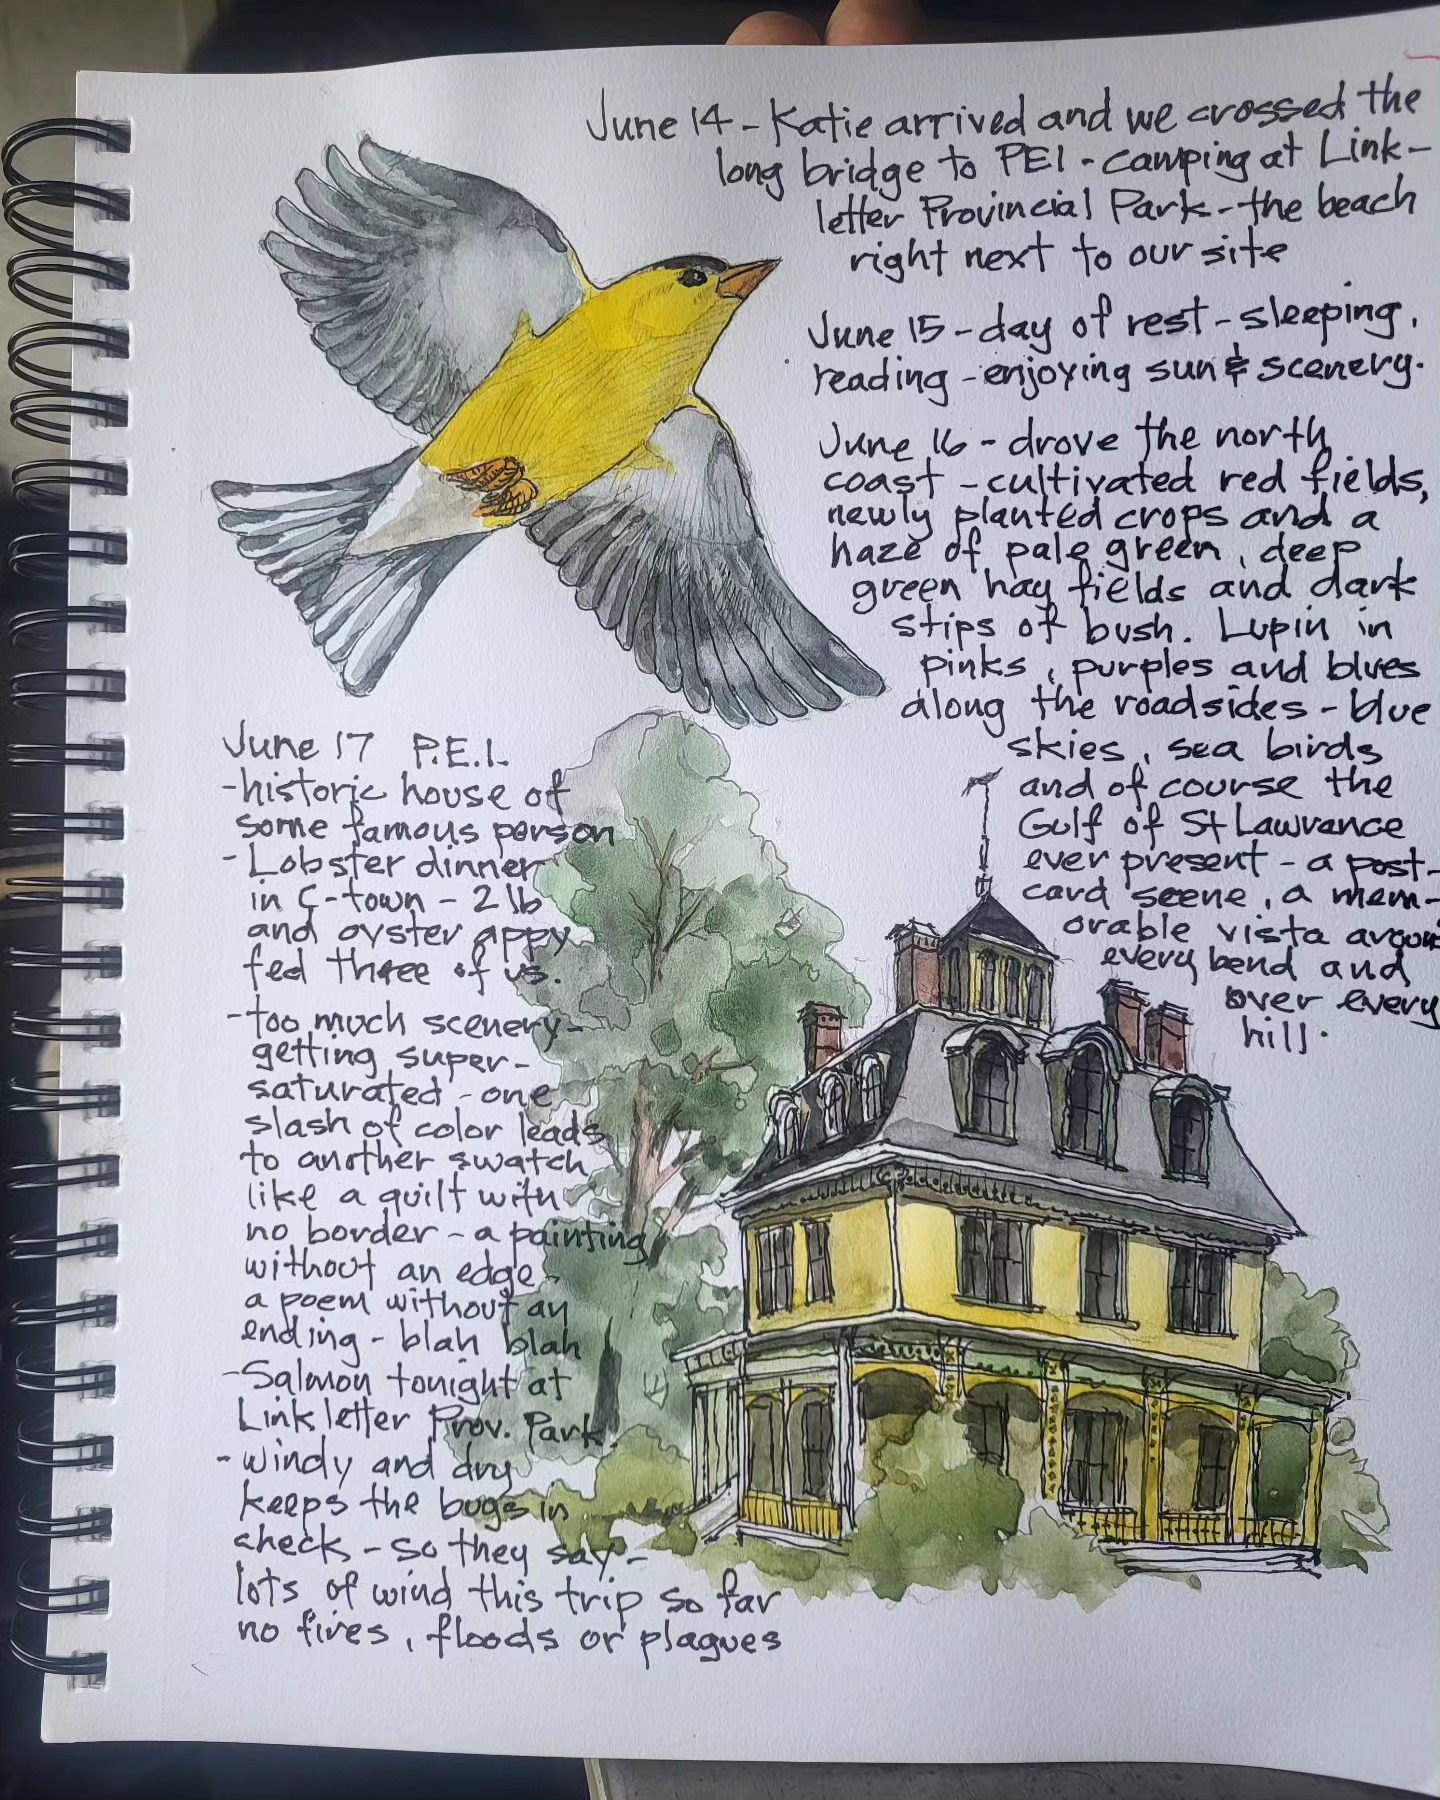 June 14 - Katie arrived and we crossed the
long bridge to PEI - camping at Link-
letter Provincial Park - the beach
right next to our site
June 15 - day of rest - sleeping,
reading - enjoying sun & scenery.
June 16 - drove the north
coast - cultivated red fields,
newly planted crops and a
haze of pale green, deep
green hay fields and dark
stips of bush. Lupin in
pinks, purples and blues
along the roadsides - blue
skies, sea birds
and of course the
Gulf of St Lawrance
ever present - a post-
card scene, a mem-
orable vista aroun
every bend and
over every
hill.
June 17 P.E.I.
- historic house of
some famous person
- Lobster dinner
in C-town - 2 lb
and oyster appy
fed three of us.
- too much scenery -
getting super-
saturated - one
slash of color leads
to another swatch
like a quilt with
no border - a painting
without an edge -
a poem without an
ending - blah blah
- Salmon tonight at
Linkletter Prov. Park
- windy and dry
keeps the bugs in
check - so they say -
lots of wind this trip so far
no fires, floods or plagues